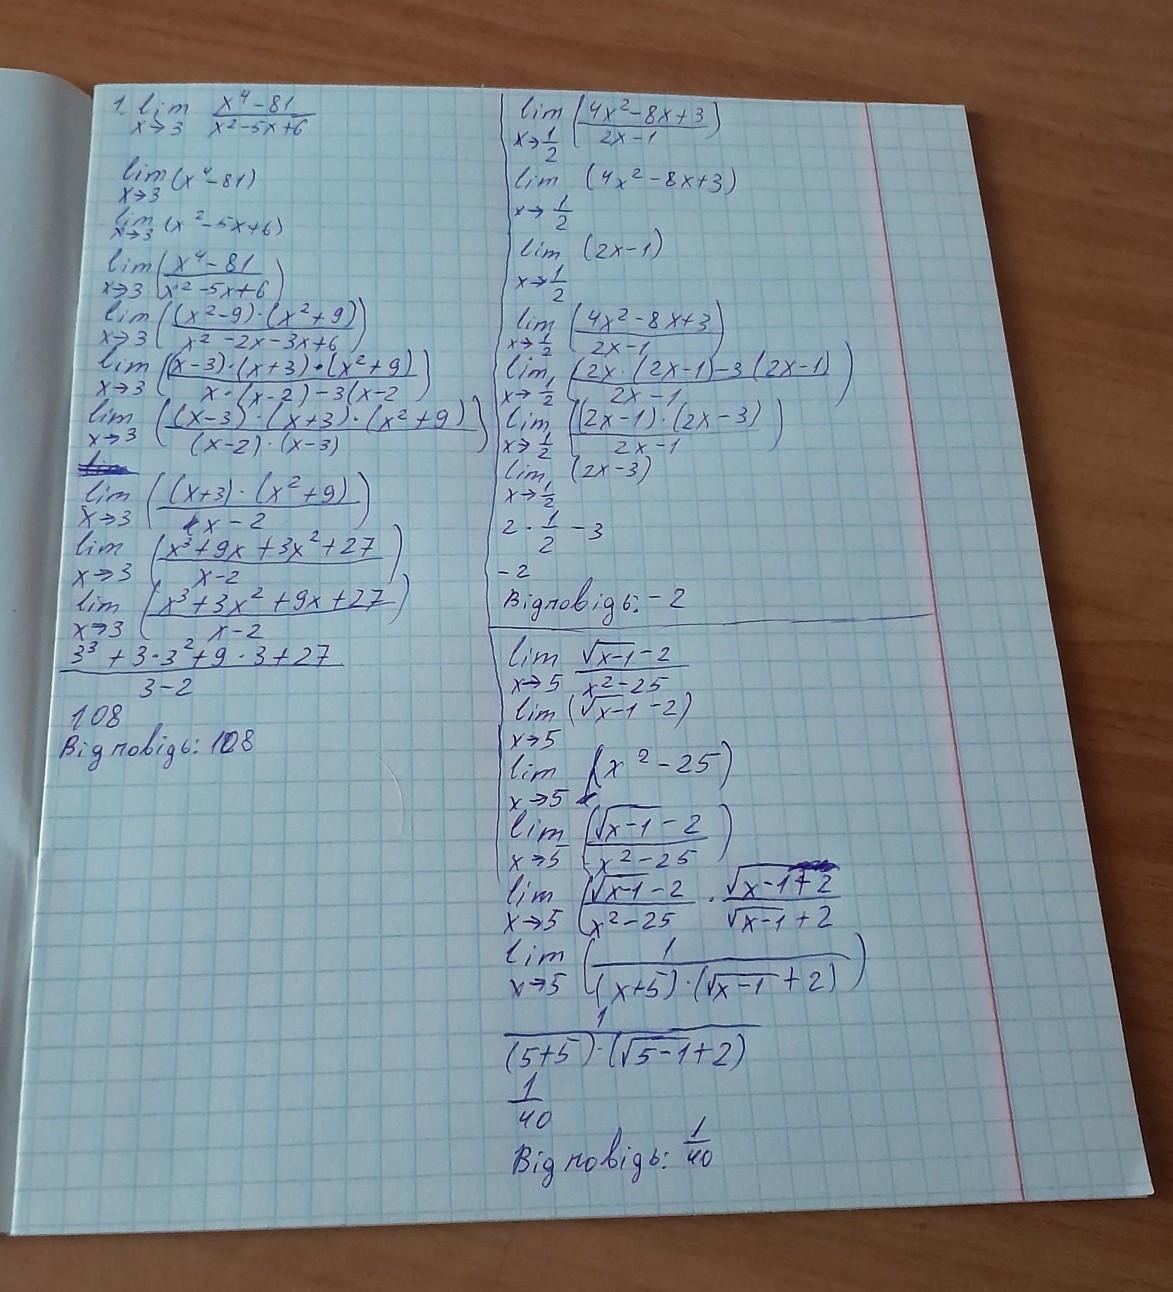 1. lim x→3 (x⁴-81)/(x²-5x+6)
lim x→3 (x⁴-81)
lim x→3 (x²-5x+6)
lim x→3 ((x⁴-81)/(x²-5x+6))
lim x→3 (((x²-9)·(x²+9))/(x²-2x-3x+6))
lim x→3 (((x-3)·(x+3)·(x²+9))/(x·(x-2)-3(x-2))
lim x→3 (((x-3)·(x+3)·(x²+9))/((x-2)·(x-3)))
lim x→3 (((x+3)·(x²+9))/(x-2))
lim x→3 ((x³+9x+3x²+27)/(x-2))
lim x→3 ((x³+3x²+9x+27)/(x-2))
(3³+3·3²+9·3+27)/(3-2)
108
Відповідь: 108
lim x→1/2 ((4x²-8x+3)/(2x-1))
lim x→1/2 (4x²-8x+3)
lim x→1/2 (2x-1)
lim x→1/2 ((4x²-8x+3)/(2x-1))
lim x→1/2 ((2x·(2x-1)-3(2x-1))/(2x-1))
lim x→1/2 (((2x-1)·(2x-3))/(2x-1))
lim x→1/2 (2x-3)
2·1/2-3
-2
Відповідь: -2
lim x→5 (√(x-1)-2)/(x²-25)
lim x→5 (√(x-1)-2)
lim x→5 (x²-25)
lim x→5 ((√(x-1)-2)/(x²-25))
lim x→5 ((√(x-1)-2)/(x²-25)·(√(x-1)+2)/(√(x-1)+2)
lim x→5 (1/((x+5)·(√(x-1)+2)))
1/((5+5)·(√(5-1)+2))
1/40
Відповідь: 1/40